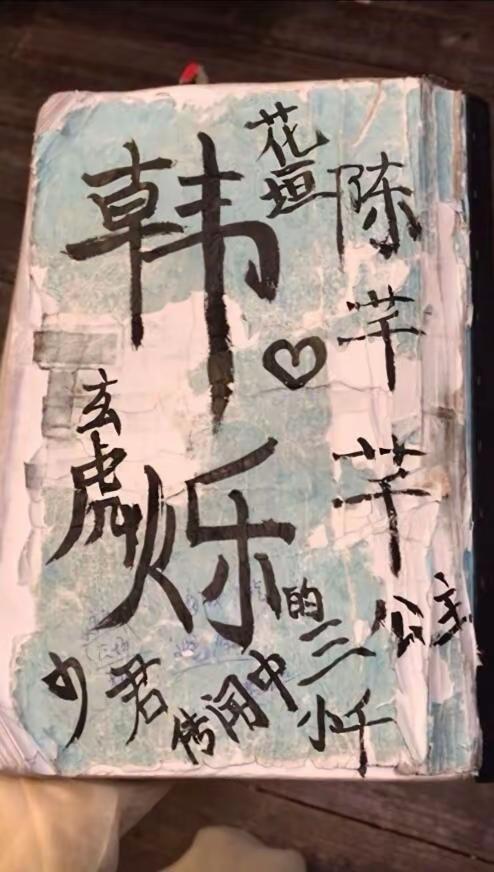 韩烁
花垣
陈芊芊
♡
玄虎
少君
传闻中的三公主